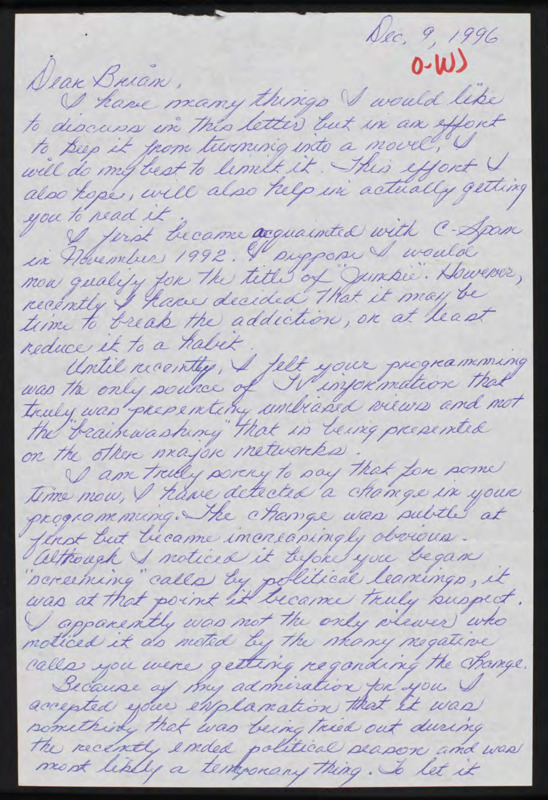 Dec. 9, 1996
O-WJ
Dear Brian,
I have many things I would like
to discuss in this letter but in an effort
to keep it from turning into a novel, I
will do my best to limit it. This effort I
also hope, will also help in actually getting
you to read it.
I first became acquainted with C-Span
in November 1992. I suppose I would
now qualify for the title of "Junkie". However,
recently I have decided that it may be
time to break the addiction, or at least
reduce it to a habit.
Until recently, I felt your programming
was the only source of TV information that
truly was presenting unbiased views and not
the "brainwashing" that is being presented
on the other major networks.
I am truly sorry to say that for some
time now, I have detected a change in your
programming. The change was subtle at
first but became increasingly obvious.
Although I noticed it before you began
"screening" calls by political leanings, it
was at that point it became truly suspect.
I apparently was not the only viewer who
noticed it as noted by the many negative
calls you were getting regarding the change.
Because of my admiration for you I
accepted your explanation that it was
something that was being tried out during
the recently ended political season and was
most likely a temporary thing. To let it